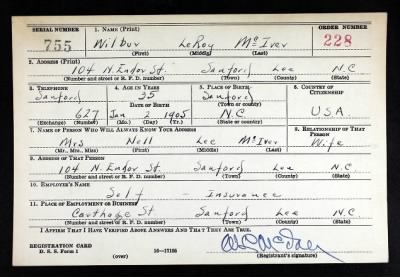 SERIAL NUMBER 1. NAME (Print) ORDER NUMBER
755 Wilbur LeRoy McIver 228
(First) (Middle) (Last)
2. ADDRESS (Print)
104 N. Endor St. Sanford Lee N.C
(Number and street or R. F. D. number) (Town) (County) (State)
3. TELEPHONE 4. AGE IN YEARS 5. PLACE OF BIRTH 6. COUNTRY OF CITIZENSHIP
Sanford 35 Sanford
DATE OF BIRTH (Town or county)
627 Jan 2 1905 N.C U.S.A.
(Exchange) (Number) (Mo.) (Day) (Yr.) (State or country)
7. NAME OF PERSON WHO WILL ALWAYS KNOW YOUR ADDRESS 8. RELATIONSHIP OF THAT PERSON
Mrs Nell Lee McIver Wife
(Mr., Mrs., Miss) (First) (Middle) (Last)
9. ADDRESS OF THAT PERSON
104 N. Endor St. Sanford Lee N.C.
(Number and street or R. F. D. number) (Town) (County) (State)
10. EMPLOYER'S NAME
Self - Insurance
11. PLACE OF EMPLOYMENT OR BUSINESS
Carthage St Sanford Lee N.C
(Number and street or R. F. D. number) (Town) (County) (State)
I AFFIRM THAT I HAVE VERIFIED ABOVE ANSWERS AND THAT THEY ARE TRUE.
REGISTRATION CARD
D. S. S. Form 1 (over) 16-17105 (Registrant's signature)